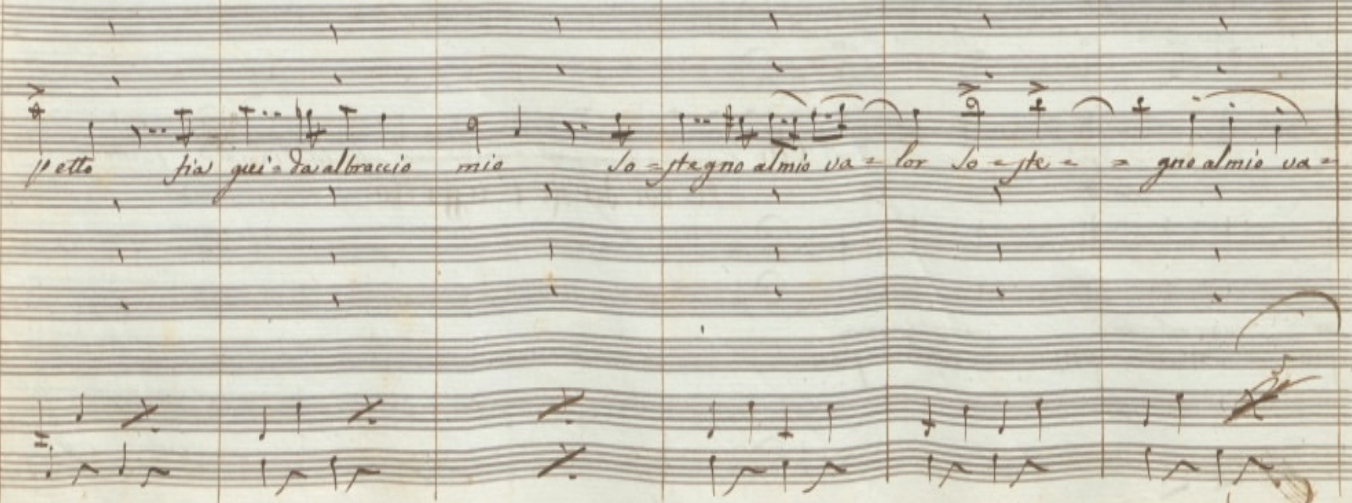 petto sia gui = da al braccio mio so = stegno al mio va = lor so = ste = = gno al mio va =